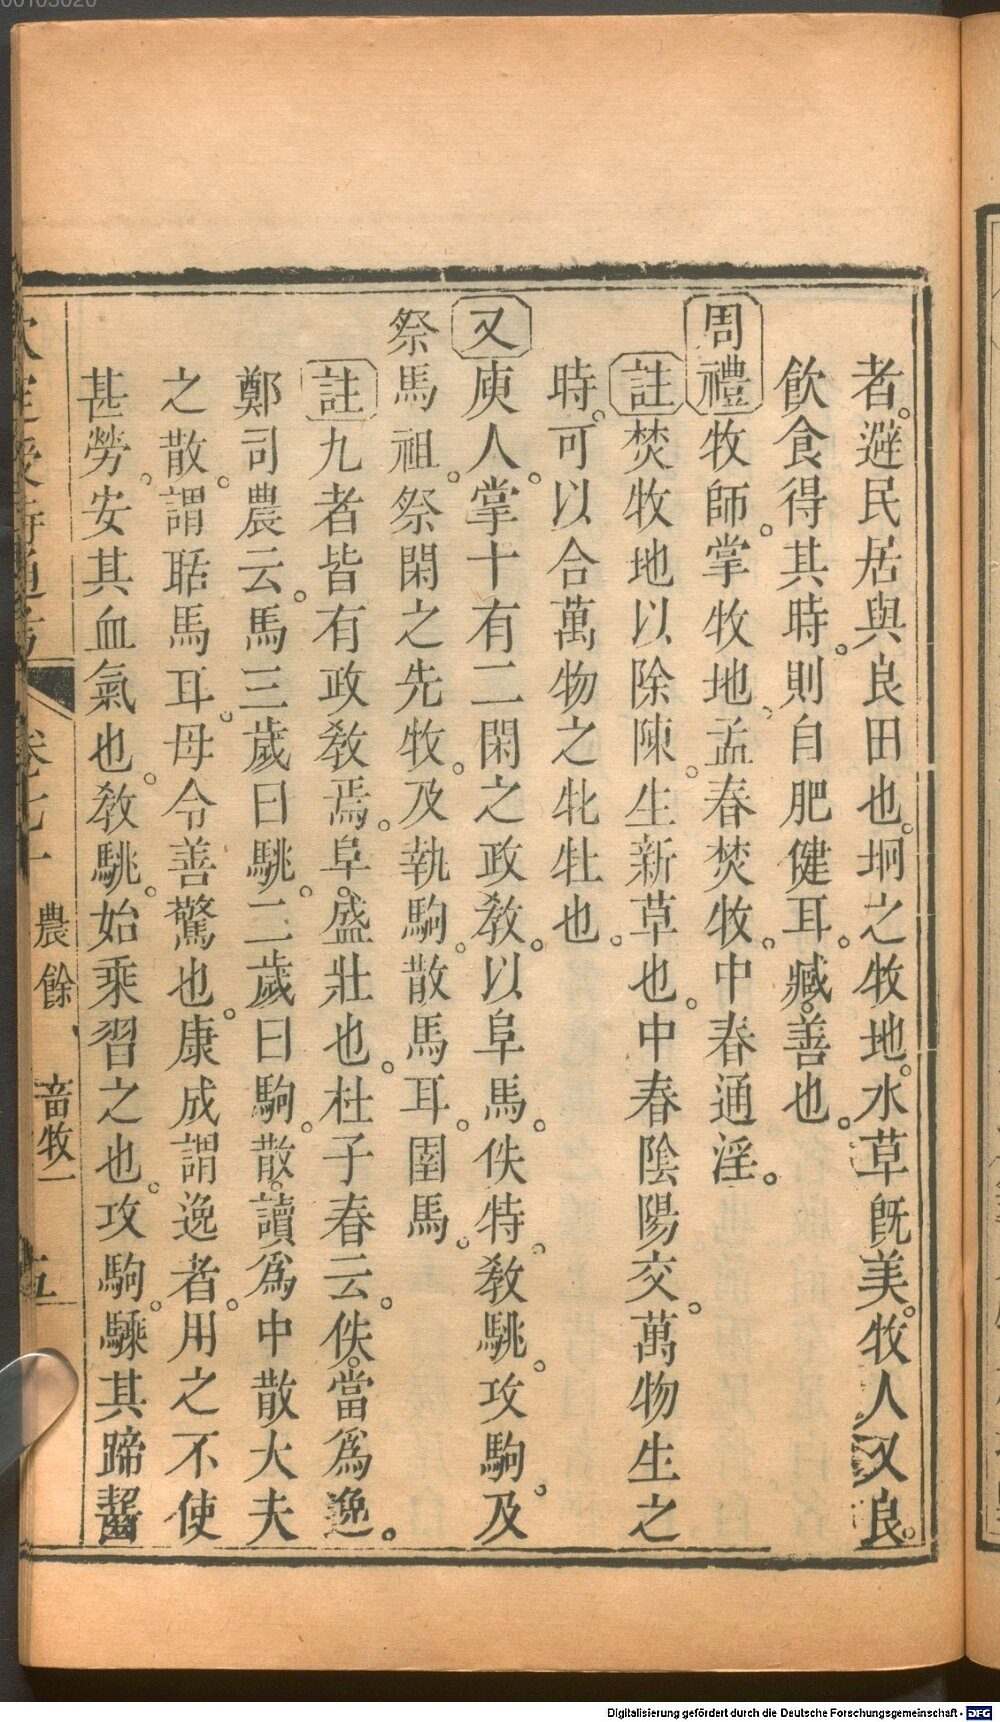 者。避民居與良田也。坰之牧地。水草旣美。牧人又良。
飲食得其時。則自肥健耳。臧。善也。
周禮牧師。掌牧地、孟春焚牧。中春通淫。
註焚牧地以除陳。生新草也。中春陰陽交。萬物生之
時。可以合萬物之牝牡也。
又庾人。掌十有二閑之政敎。以阜馬。佚特。敎駣。攻駒。及
祭馬祖。祭閑之先牧。及執駒。散馬耳。圉馬。
註九者皆有政敎焉。阜。盛壯也。杜子春云。佚。當爲逸。
鄭司農云。馬三歲曰駣。二歲曰駒。散。讀爲中散大夫
之散。謂聒馬耳。毋令善驚也。康成謂逸者。用之不使
甚勞。安其血氣也。敎駣。始乘習之也。攻駒。騬其蹄齧
欽定授時通考 卷七十一 農餘、畜牧一 五
Digitalisierung gefördert durch die Deutsche Forschungsgemeinschaft - DFG